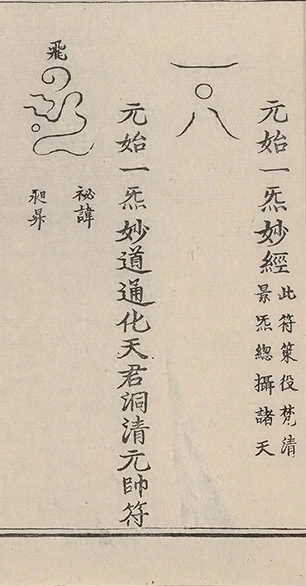 元始一炁妙經
此符策役梵清
景炁總攝諸天
元始一炁妙道通化天君洞清元帥符
飛
祕諱
昶昇